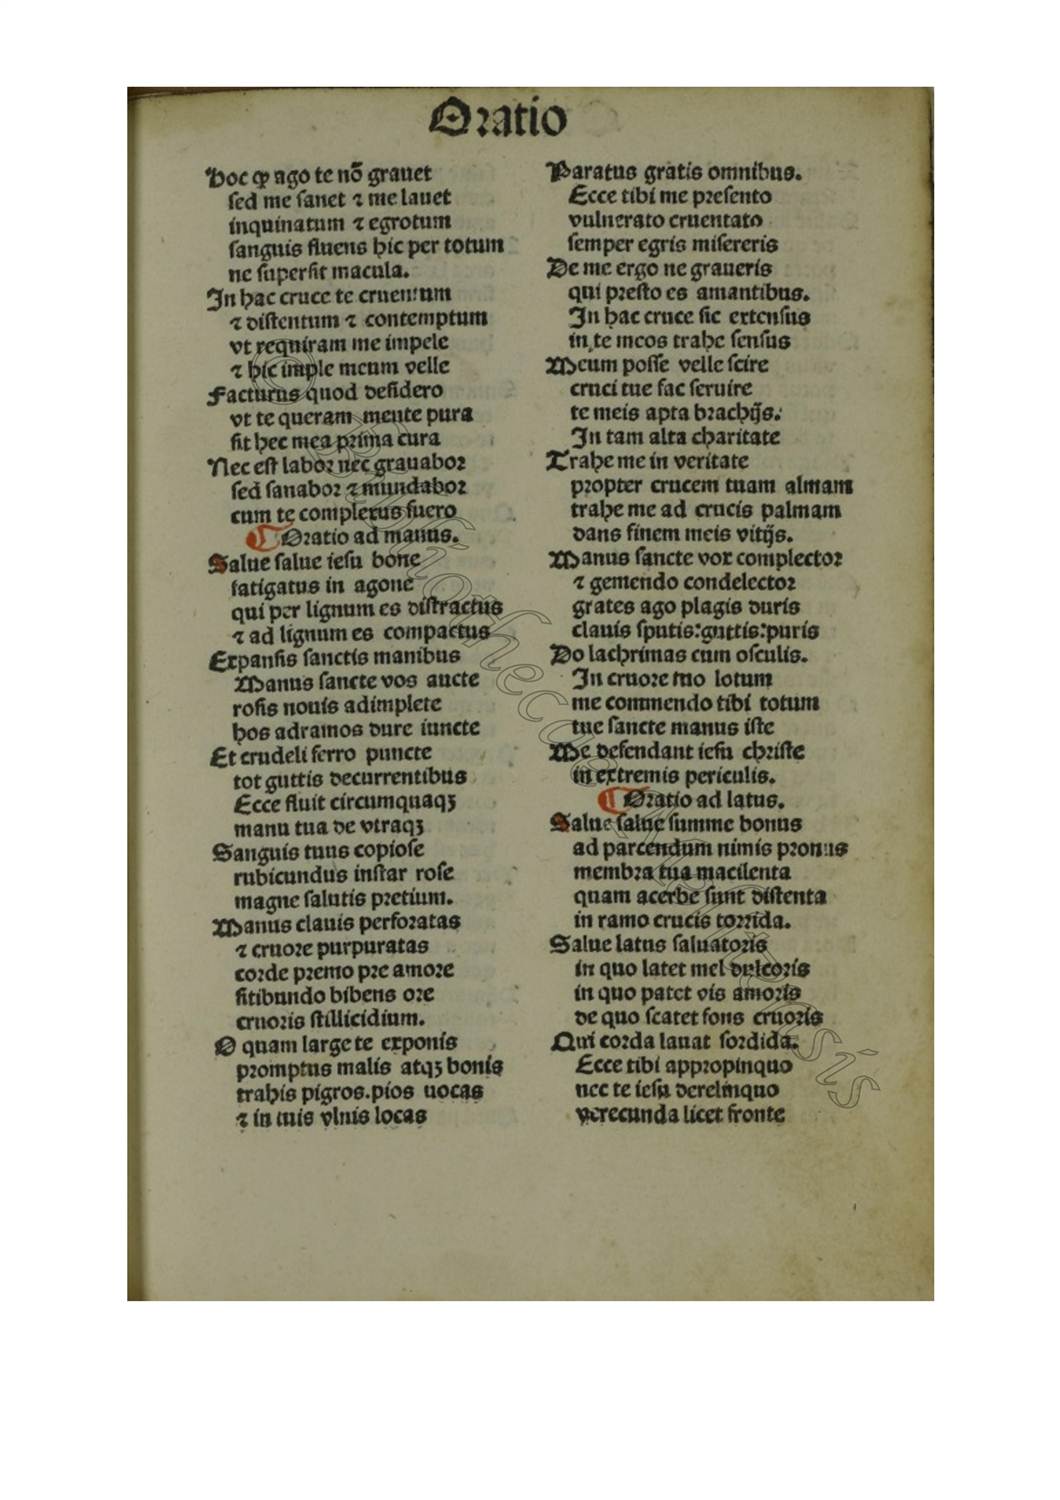 Oratio
Hoc ꝙ ago te nõ grauet
sed me sanet ⁊ me lauet
inquinatum ⁊ egrotum
sanguis fluens hic per totum
ne supersit macula.
In hac cruce te cruentum
⁊ distentum ⁊ contemptum
vt requiram me impele
⁊ hic imple meum velle
Facturus quod desidero
vt te queram mente pura
sit hec mea prima cura
Nec est labor nec grauabor
sed sanabor ⁊ mundabor
cum te complexus fuero
¶ Oratio ad manus.
Salue salue iesu bone
fatigatus in agone
qui per lignum es distractus
⁊ ad lignum es compactus
Expansis sanctis manibus
Manus sancte vos aucte
rosis nouis adimplete
hos ad ramos dure iuncte
Et crudeli ferro puncte
tot guttis decurrentibus
Ecce fluit circumquaqꝫ
manu tua de vtraqꝫ
Sanguis tuus copiose
rubicundus instar rose
magne salutis pretium.
Manus clauis perforatas
⁊ cruore purpuratas
corde premo pre amore
sitibundo bibens ore
cruoris stillicidium.
O quam large te exponis
promptus malis atqꝫ bonis
trahis pigros.pios uocas
⁊ in tuis vlnis locas
Paratus gratis omnibus.
Ecce tibi me presento
vulnerato cruentato
semper egris misereris
De me ergo ne graueris
qui presto es amantibus.
In hac cruce sic extensus
in te meos trahe sensus
Meum posse velle scire
cruci tue fac seruire
te meis apta brachijs.
In tam alta charitate
Trahe me in veritate
propter crucem tuam almam
trahe me ad crucis palmam
dans finem meis vitijs.
Manus sancte vox complector
⁊ gemendo condelector
grates ago plagis duris
clauis sputis:guttis:puris
Do lachrimas cum osculis.
In cruore tuo lotum
me commendo tibi totum
tue sancte manus iste
Me defendant iesu christe
in extremis periculis.
¶ Oratio ad latus.
Salue salue summe bonus
ad parcendum nimis pronus
membra tua macilenta
quam acerbe sunt distenta
in ramo crucis torrida.
Salue latus saluatoris
in quo latet mel dulcoris
in quo patet vis amoris
de quo scatet fons cruoris
Qui corda lauat sordida.
Ecce tibi appropinquo
nec te iesu derelinquo
verecunda licet fronte